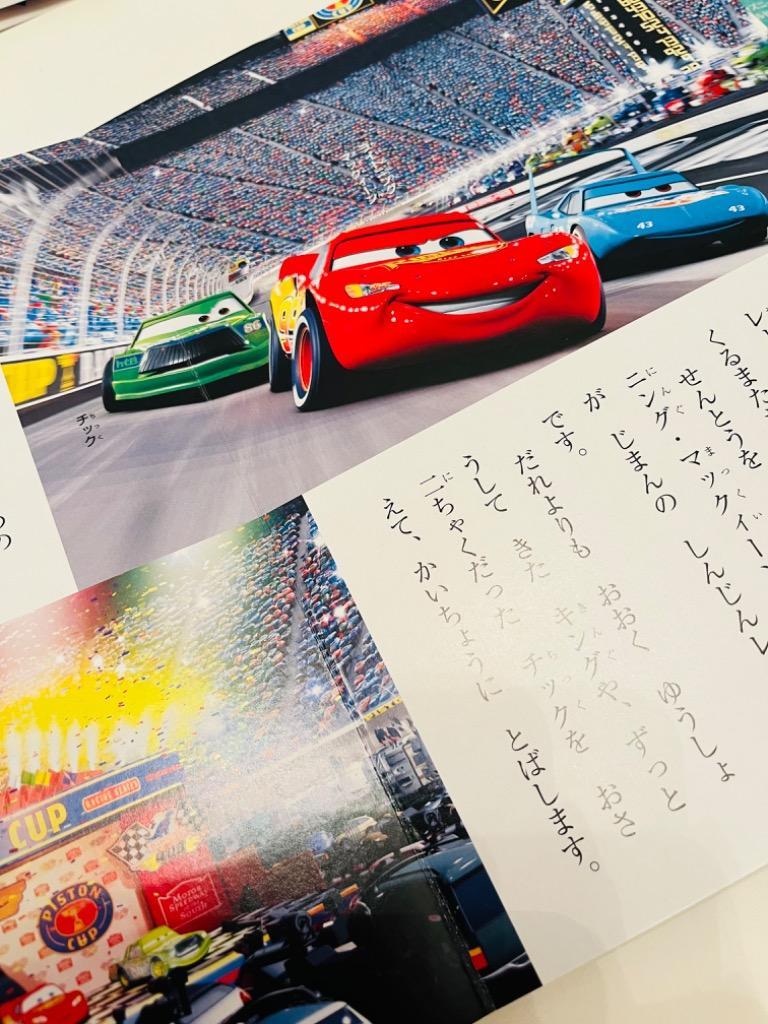 86
43
43
チック
くるま
せんとうを
ニング・マックイー、
が じまんの しんじん
です。
だれよりも おおく ゆうしょ
うして きた キングや、 ずっと
二ちゃくだった チックを おさ
えて、かいちょうに とばします。
CUP
RACING SERIES
PISTON
CUP
MOTOR
SPEEDWAY
SOUTH